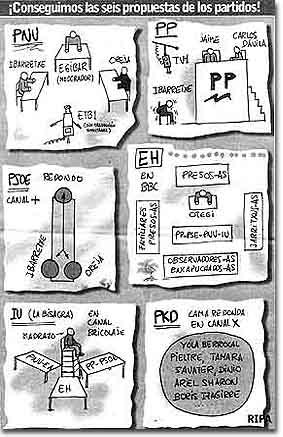 ¡Conseguimos las seis propuestas de los partidos!
PNV
IBARRETXE
EGIBAR
(MODERADOR)
OREJA
ETB1
PP
JAIME
CARLOS
DÁVILA
TVE1
PP
IBARRETXE
PSOE
REDONDO
CANAL +
IBARRETXE
OREJA
EH
EN
BBC
PRESOS-AS
OTEGI
FAMILIARES
PRESOS-AS
PP-PSE-PNV-IU
OBSERVADORES-AS
ENKAPUCHADOS-AS
IU (LA BISAGRA)
EN
CANAL
BRICOLAJE
MADRAZO
PNV-EA
PP-PSOE
EH
PKD
CAMA REDONDA
EN CANAL X
YOLA BERROCAL
PIELTRE, TAMARA
SAVATER, DINIO
AREL SHARON
BORIS IZAGIRRE
RIPA